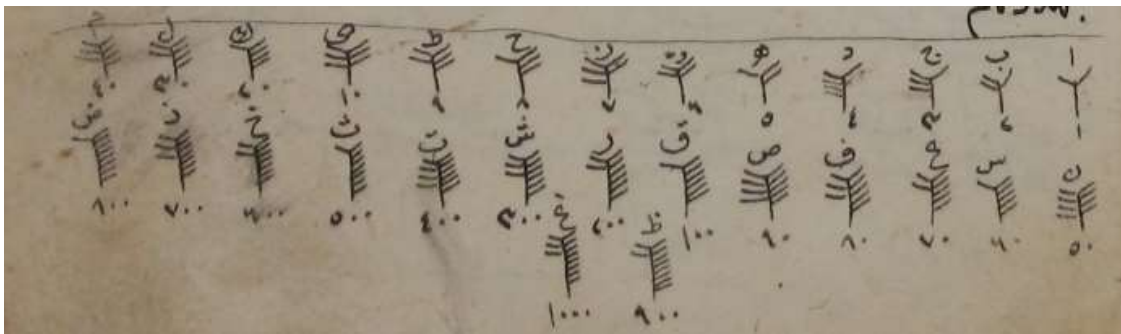 ا ب ج د ه و ز ح ط ي ك ل م
١ ٢ ٣ ٤ ٥ ٦ ٧ ٨ ٩ ١٠ ٢٠ ٣٠ ٤٠
ن س ع ف ص ق ر ش ت ث خ ذ ض
٥٠ ٦٠ ٧٠ ٨٠ ٩٠ ١٠٠ ٢٠٠ ٣٠٠ ٤٠٠ ٥٠٠ ٦٠٠ ٧٠٠ ٨٠٠
ظ غ
٩٠٠ ١٠٠٠